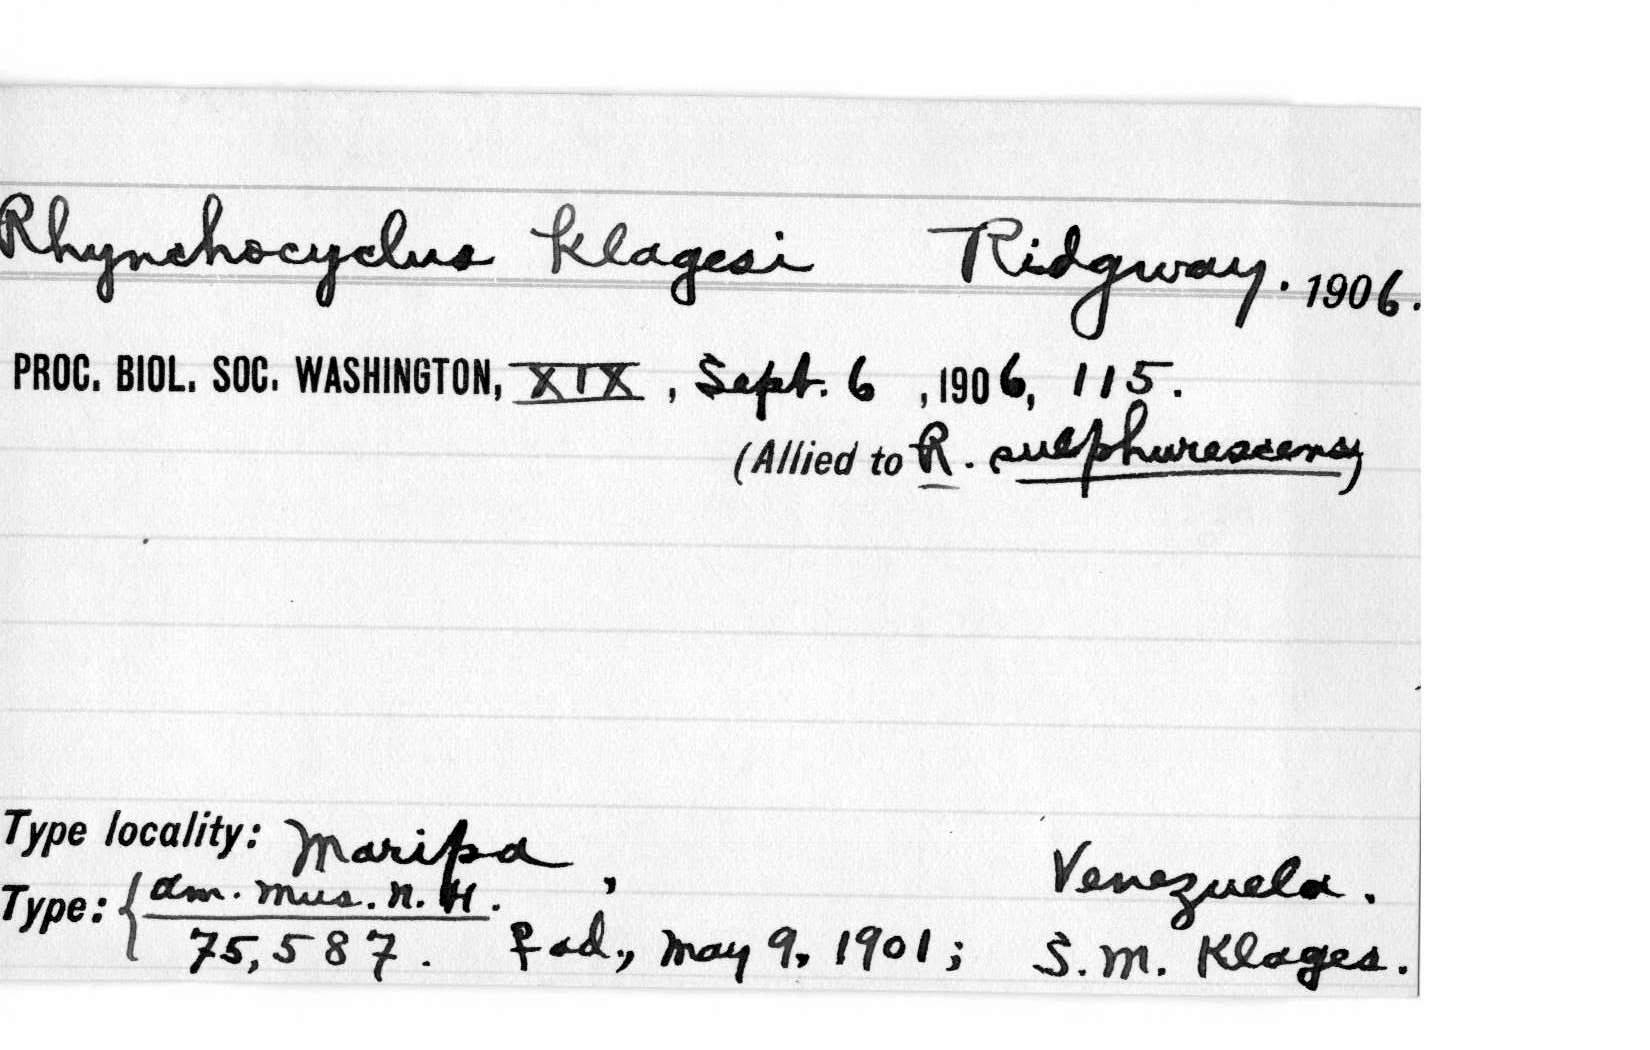 Rhynchocyclus klagesi Ridgway. 1906.
PROC. BIOL. SOC. WASHINGTON, XIX, Sept. 6, 1906, 115.
(Allied to R. sulphurescens)
Type locality: Maripa, Venezuela.
Type: { Am. Mus. N. H.
75,587. ♀ ad., May 9, 1901; S. M. Klages.